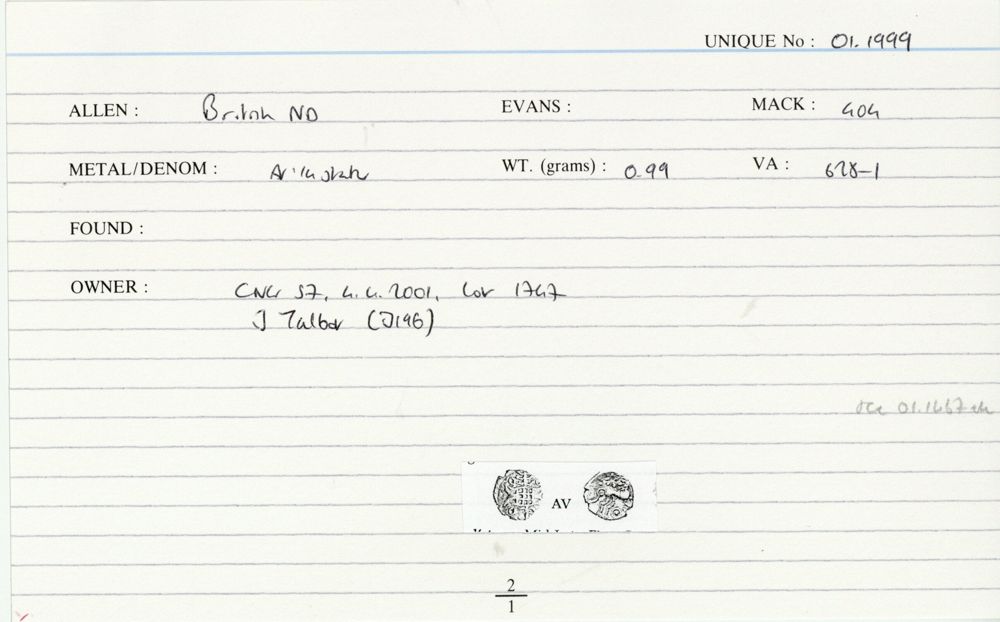 UNIQUE No : 01.1999
ALLEN : British ND EVANS : MACK : 404
METAL/DENOM : WT. (grams) : 0.99 VA : 628-1
FOUND :
OWNER : CNG 57, 4.4.2001, Lot 1747
J Talbot (J196)
01.1667
AV
2
1